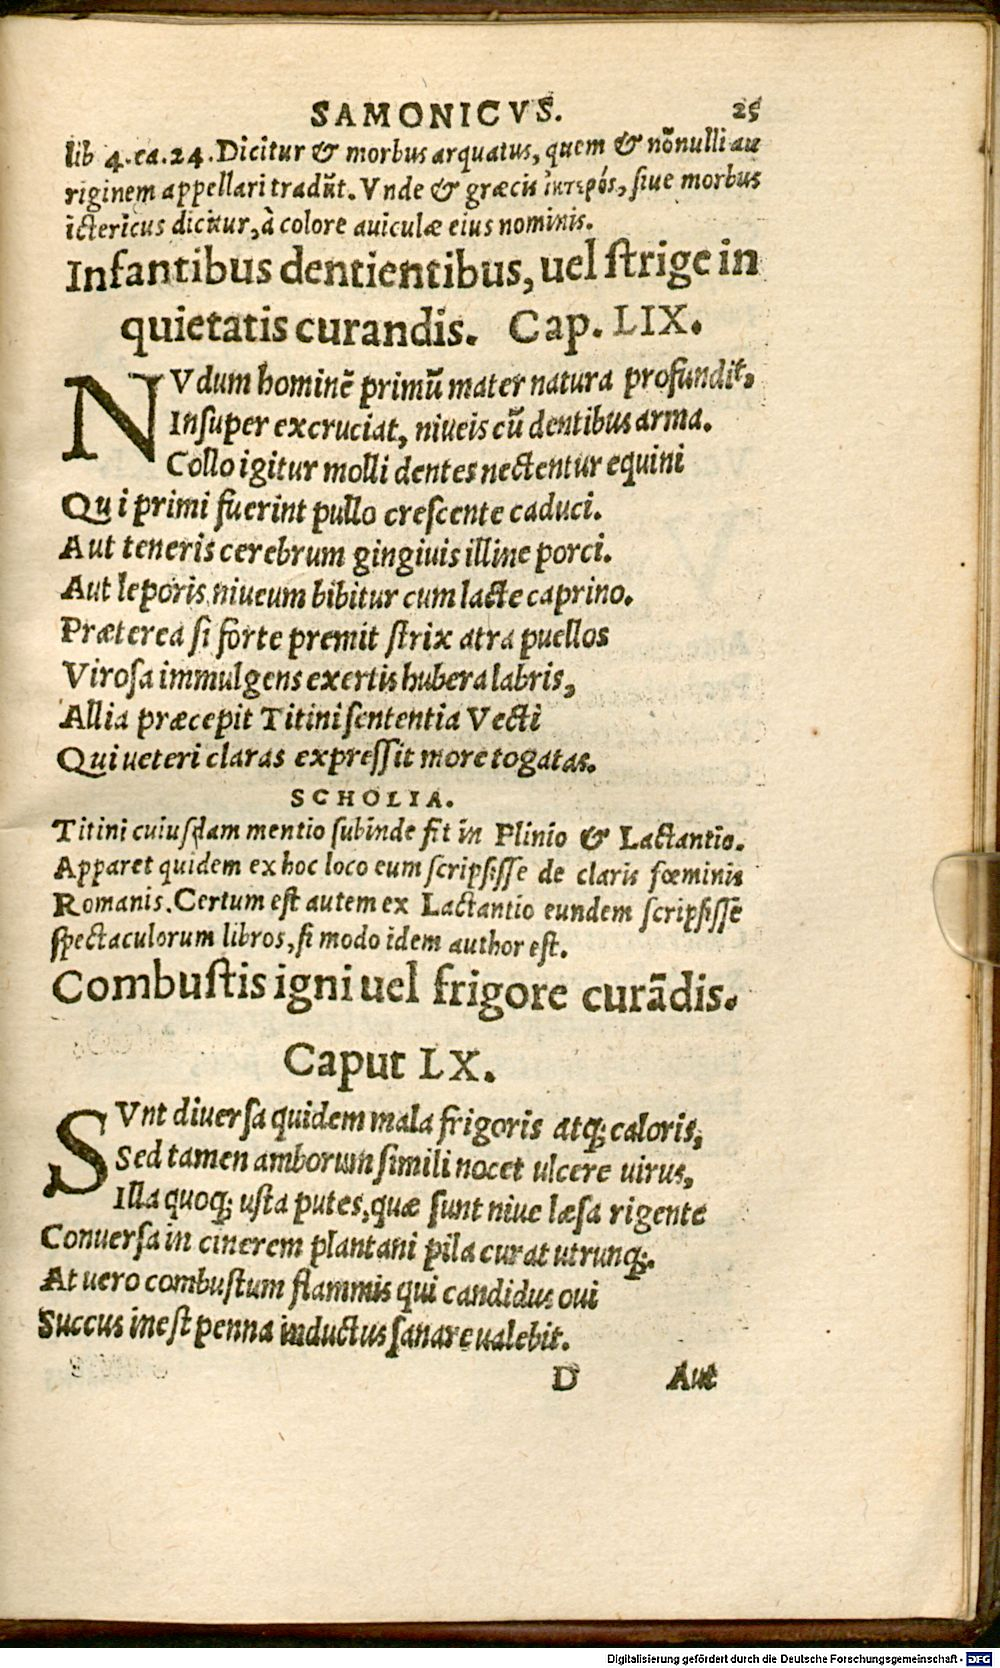 SAMONICVS. 25
lib 4. ca. 24. Dicitur & morbus arquatus, quem & nõnulli au
riginem appellari tradũt. Vnde & græcis ἰκτερός, siue morbus
ictericus dicitur, à colore auiculæ eius nominis.
Infantibus dentientibus, uel ſtrige in
quietatis curandis. Cap. LIX.
NVdum hominẽ primũ mater natura profundit,
Inſuper excruciat, niueis cũ dentibus arma.
Collo igitur molli dentes nectentur equini
Qui primi fuerint pullo creſcente caduci.
Aut teneris cerebrum gingiuis illine porci.
Aut leporis niueum bibitur cum lacte caprino.
Præterea ſi forte premit ſtrix atra puellos
Viroſa immulgens exertis hubera labris,
Allia præcepit Titini ſententia Vecti
Qui ueteri claras expreſſit more togatas.
SCHOLIA.
Titini cuiuſdam mentio ſubinde fit in Plinio & Lactantio.
Apparet quidem ex hoc loco eum ſcripſiſſe de claris fœminis
Romanis. Certum eſt autem ex Lactantio eundem ſcripſiſſe
ſpectaculorum libros, ſi modo idem author eſt.
Combuſtis igni uel frigore curãdis.
Caput LX.
SVnt diuerſa quidem mala frigoris atq; caloris,
Sed tamen amborum ſimili nocet ulcere uirus,
Illa quoq; uſta putes, quæ ſunt niue læſa rigente
Conuerſa in cinerem plantani pila curat utrunq;.
At uero combuſtum flammis qui candidus oui
Succus ineſt penna inductus ſanare ualebit.
D Aut
Digitalisierung gefördert durch die Deutsche Forschungsgemeinschaft - DFG